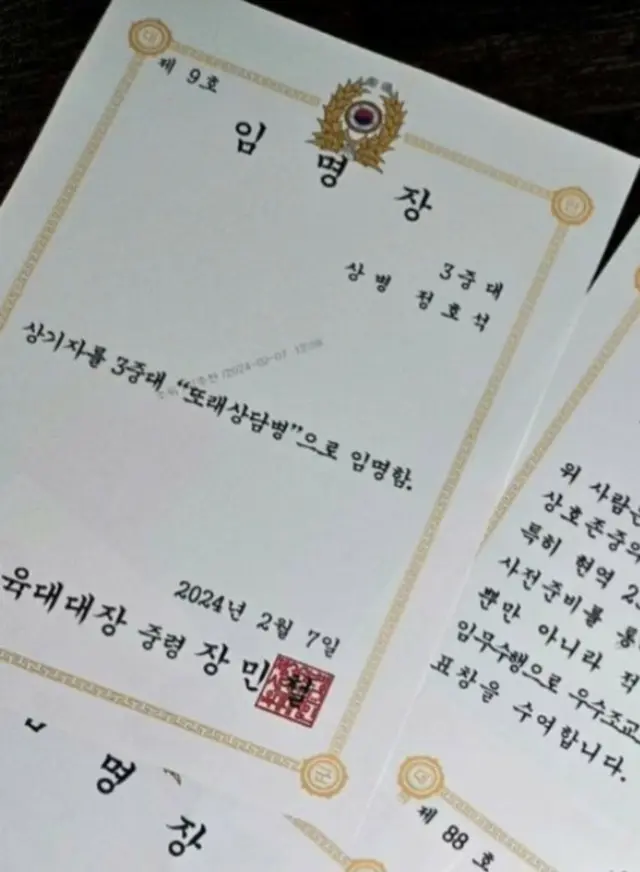 제 9호
임 명 장
3중대
상병 정호석
상기자를 3중대 “또래상담병”으로 임명함.
/2024-02-07
2024년 2월 7일
육대대장 중령 장 민
위 사람은
상호존중의
특히 현역
사전준비를
뿐만 아니라 적
임무수행으로 우수조교
표창을 수여합니다.
명 장
제 88 호